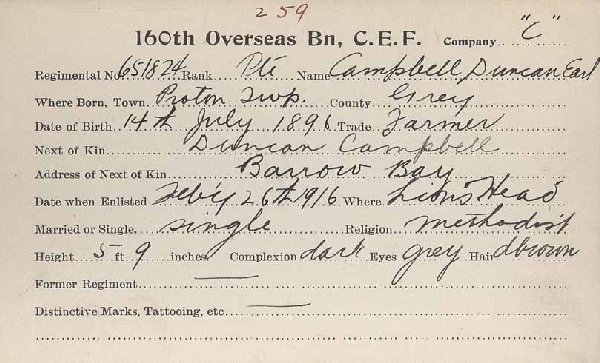 259
160th Overseas Bn, C.E.F. Company "C"
Regimental No. 651824 Rank Pte Name Campbell, Duncan Earl
Where Born, Town Proton Twp. County Grey
Date of Birth 14th July 1896 Trade Farmer
Next of Kin Duncan Campbell
Address of Next of Kin Barrow Bay
Date when Enlisted Feb'y 26th 1916 Where Lion's Head
Married or Single single Religion methodist
Height 5 ft 9 inches Complexion dark Eyes grey Hair dbrown
Former Regiment —
Distinctive Marks, Tattooing, etc. —